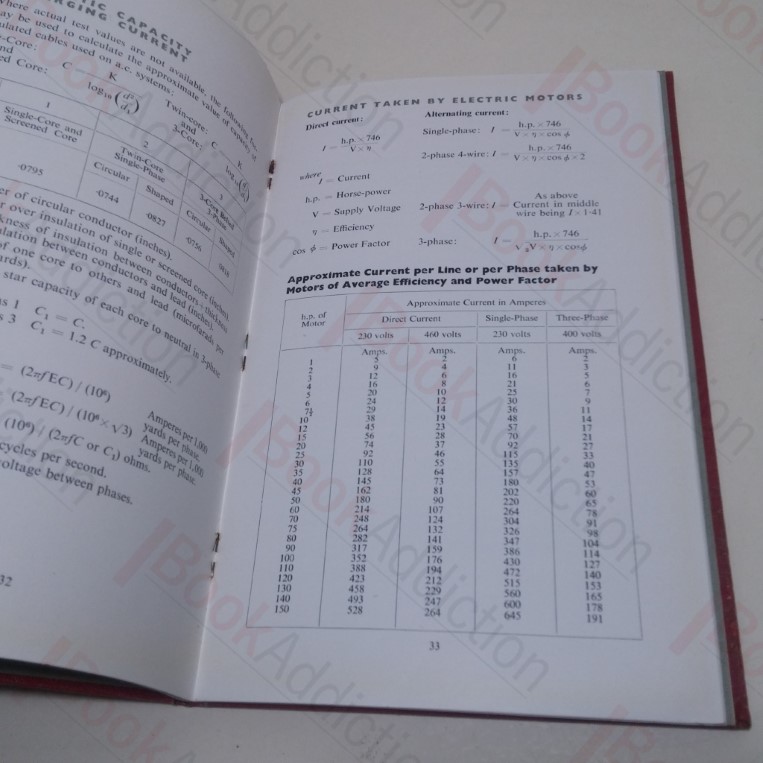 CAPACITY
CURRENT
where actual test values are not available, the following
may be used to calculate the approximate value of capacity of
cables used on a.c. systems:
K
C
log₁₀
Twin-core:
and
3-Core:
C
K
1
Single-Core and
Screened Core
2
Twin-Core
Single-Phase
Circular
Shaped
Circular
Shaped
·0795
·0744
·0827
of circular conductor (inches).
over insulation of single or screened core (inches)
of insulation between conductors and lead (inches).
of one core to others and lead (microfarads per
star capacity of each core to neutral in 3-phase
1 C₁ = C.
3 C₁ = 1.2 C approximately.
= (2πfEC) / (10⁶) Amperes per 1,000
yards per phase.
(2πfEC) / (10⁶ × √3) Amperes per 1,000
yards per phase.
(10⁶) / (2πfC or C₁) ohms.
cycles per second.
voltage between phases.
32
CURRENT TAKEN BY ELECTRIC MOTORS
Direct current:
I = h.p. × 746 / V × η
Alternating current:
Single-phase: I = h.p. × 746 / V × η × cos φ
2-phase 4-wire: I = h.p. × 746 / V × η × cos φ × 2
where
I = Current
h.p. = Horse-power
V = Supply Voltage
η = Efficiency
cos φ = Power Factor
2-phase 3-wire: I = As above
Current in middle
wire being I × 1·41
3-phase: I = h.p. × 746 / √3V × η × cosφ
Approximate Current per Line or per Phase taken by
Motors of Average Efficiency and Power Factor
h.p. of
Motor
Approximate Current in Amperes
Direct Current Single-Phase Three-Phase
230 volts 460 volts 230 volts 400 volts
Amps. Amps. Amps. Amps.
1 5 2 6 2
2 9 4 11 3
3 12 6 16 5
4 16 8 21 6
5 20 10 25 7
6 24 12 30 9
7½ 29 14 36 11
10 38 19 48 14
12 45 23 57 17
15 56 28 70 21
20 74 37 92 27
25 92 46 115 33
30 110 55 135 40
35 128 64 157 47
40 145 73 180 53
45 162 81 202 60
50 180 90 220 65
60 214 107 264 78
70 248 124 304 91
75 264 132 326 98
80 282 141 347 104
90 317 159 386 114
100 352 176 430 127
110 388 194 472 140
120 423 212 515 153
130 458 229 560 165
140 493 247 600 178
150 528 264 645 191
33
BookAddiction